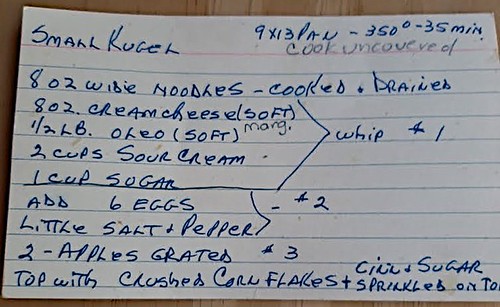 SMALL KUGEL
9X13 PAN - 350° - 35 min.
cook uncovered
8 OZ WIDE NOODLES - COOKED & DRAINED
8 OZ. CREAM CHEESE (SOFT)
1/2 LB. OLEO (SOFT) marg.
WHIP #1
2 CUPS SOUR CREAM
1 CUP SUGAR
ADD 6 EGGS - #2
LITTLE SALT & PEPPER
2 - APPLES GRATED #3
CINN & SUGAR
TOP WITH CRUSHED CORN FLAKES & SPRINKLED ON TO